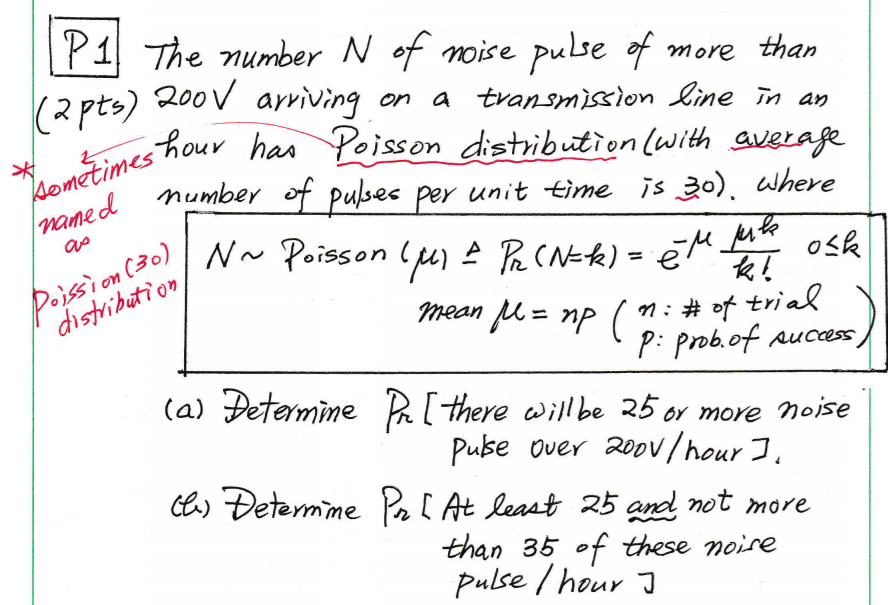 P1 The number N of noise pulse of more than
(2pts) 200V arriving on a transmission line in an
hour has Poisson distribution (with average
number of pulses per unit time is 30). Where
* sometimes
named
as
Poission (30)
distribution
N ~ Poisson (μ) ≜ Pr (N=k) = e^-μ μ^k / k! 0≤k
mean μ = np ( n: # of trial
p: prob. of success )
(a) Determine Pr [ there will be 25 or more noise
pulse over 200V/hour ].
(b) Determine Pr [ At least 25 and not more
than 35 of these noise
pulse / hour ]